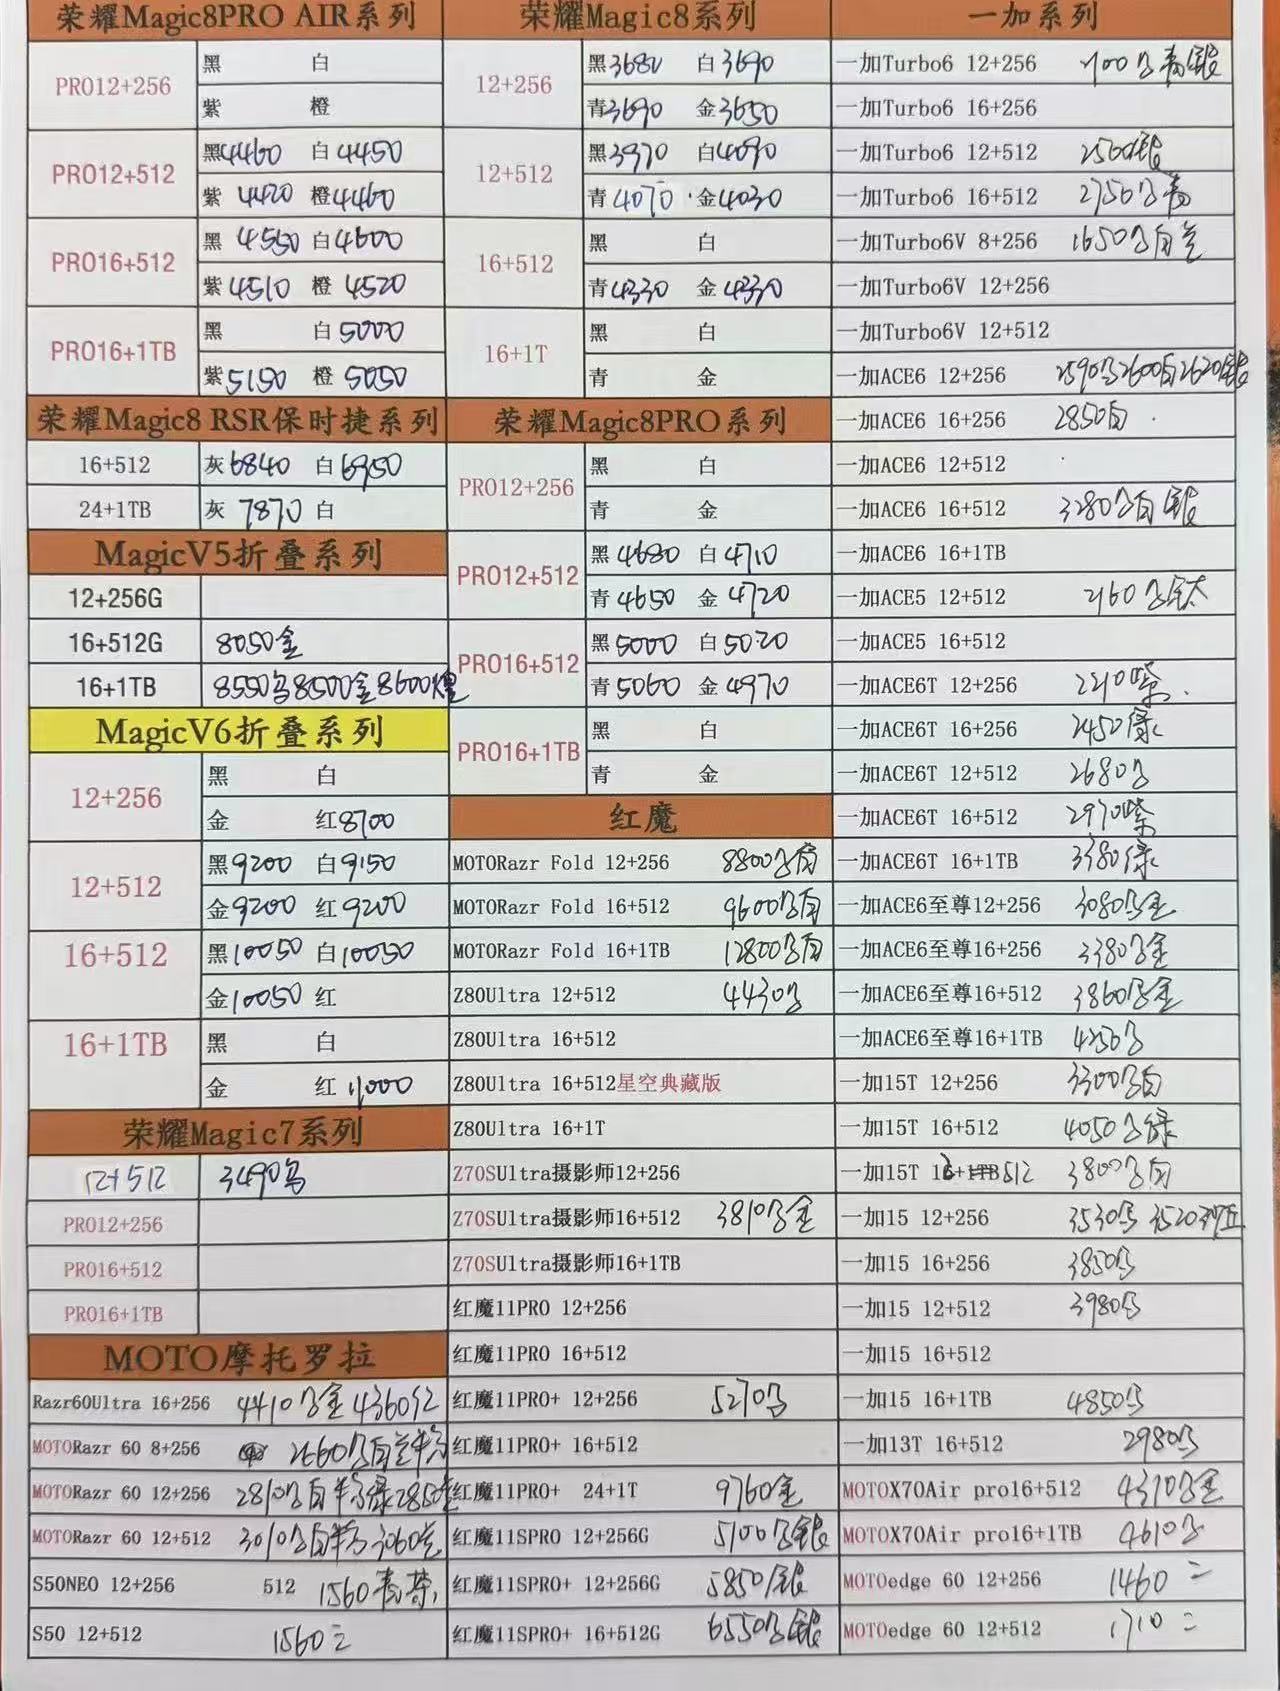 荣耀Magic8PRO AIR系列
PRO12+256
黑 白
紫 橙
PRO12+512
黑4460 白4450
紫 4420 橙4460
PRO16+512
黑 4550 白4600
紫4510 橙 4520
PRO16+1TB
黑 白5000
紫5150 橙 5050
荣耀Magic8 RSR保时捷系列
16+512 灰6840 白6950
24+1TB 灰 7870 白
MagicV5折叠系列
12+256G
16+512G 8050金
16+1TB 8550乌8500金8600
MagicV6折叠系列
12+256
黑 白
金 红8700
12+512
黑9200 白9150
金9200 红9200
16+512
黑10050 白10050
金10050 红
16+1TB
黑 白
金 红 11,000
荣耀Magic7系列
12+512 3490乌
PRO12+256
PRO16+512
PRO16+1TB
MOTO摩托罗拉
Razr60Ultra 16+256 4410乌金 4360红
MOTORazr 60 8+256
MOTORazr 60 12+256
MOTORazr 60 12+512
S50NEO 12+256 512 1560
S50 12+512 1560三
荣耀Magic8系列
12+256
黑3680 白3690
青3690 金3650
12+512
黑3970 白4090
青4070 金4030
16+512
黑 白
青4330 金4330
16+1T
黑 白
青 金
荣耀Magic8PRO系列
PRO12+256
黑 白
青 金
PRO12+512
黑4680 白4710
青4650 金4720
PRO16+512
黑5000 白5020
青5060 金4970
PRO16+1TB
黑 白
青 金
红魔
MOTORazr Fold 12+256 8800乌白
MOTORazr Fold 16+512 9600乌白
MOTORazr Fold 16+1TB 12800乌白
Z80Ultra 12+512 4430乌
Z80Ultra 16+512
Z80Ultra 16+512星空典藏版
Z80Ultra 16+1T
Z70SUltra摄影师12+256
Z70SUltra摄影师16+512 3810乌金
Z70SUltra摄影师16+1TB
红魔11PRO 12+256
红魔11PRO 16+512
红魔11PRO+ 12+256 5270乌
红魔11PRO+ 16+512
红魔11PRO+ 24+1T 9760金
红魔11SPRO 12+256G 5100乌银
红魔11SPRO+ 12+256G 5850银
红魔11SPRO+ 16+512G 6550乌银
一加系列
一加Turbo6 12+256
一加Turbo6 16+256
一加Turbo6 12+512 2560银
一加Turbo6 16+512 2750乌青
一加Turbo6V 8+256 1650乌白兰
一加Turbo6V 12+256
一加Turbo6V 12+512
一加ACE6 12+256 2590乌2600白2620银
一加ACE6 16+256 2850白
一加ACE6 12+512
一加ACE6 16+512 3280乌白银
一加ACE6 16+1TB
一加ACE5 12+512 2160乌钛
一加ACE5 16+512
一加ACE6T 12+256 2210紫
一加ACE6T 16+256 2450绿
一加ACE6T 12+512 2680乌
一加ACE6T 16+512 2970紫
一加ACE6T 16+1TB 3380绿
一加ACE6至尊12+256 3080乌金
一加ACE6至尊16+256 3380乌金
一加ACE6至尊16+512 3860乌金
一加ACE6至尊16+1TB 4250乌
一加15T 12+256 3300乌白
一加15T 16+512 4050乌绿
一加15T 512 3800乌白
一加15 12+256 3530乌 3520
一加15 16+256 3850乌
一加15 12+512 3980乌
一加15 16+512
一加15 16+1TB 4850乌
一加13T 16+512 2980乌
MOTOX70Air pro16+512 4310乌金
MOTOX70Air pro16+1TB 4610乌
MOTOedge 60 12+256 1460 二
MOTOedge 60 12+512 1710 二